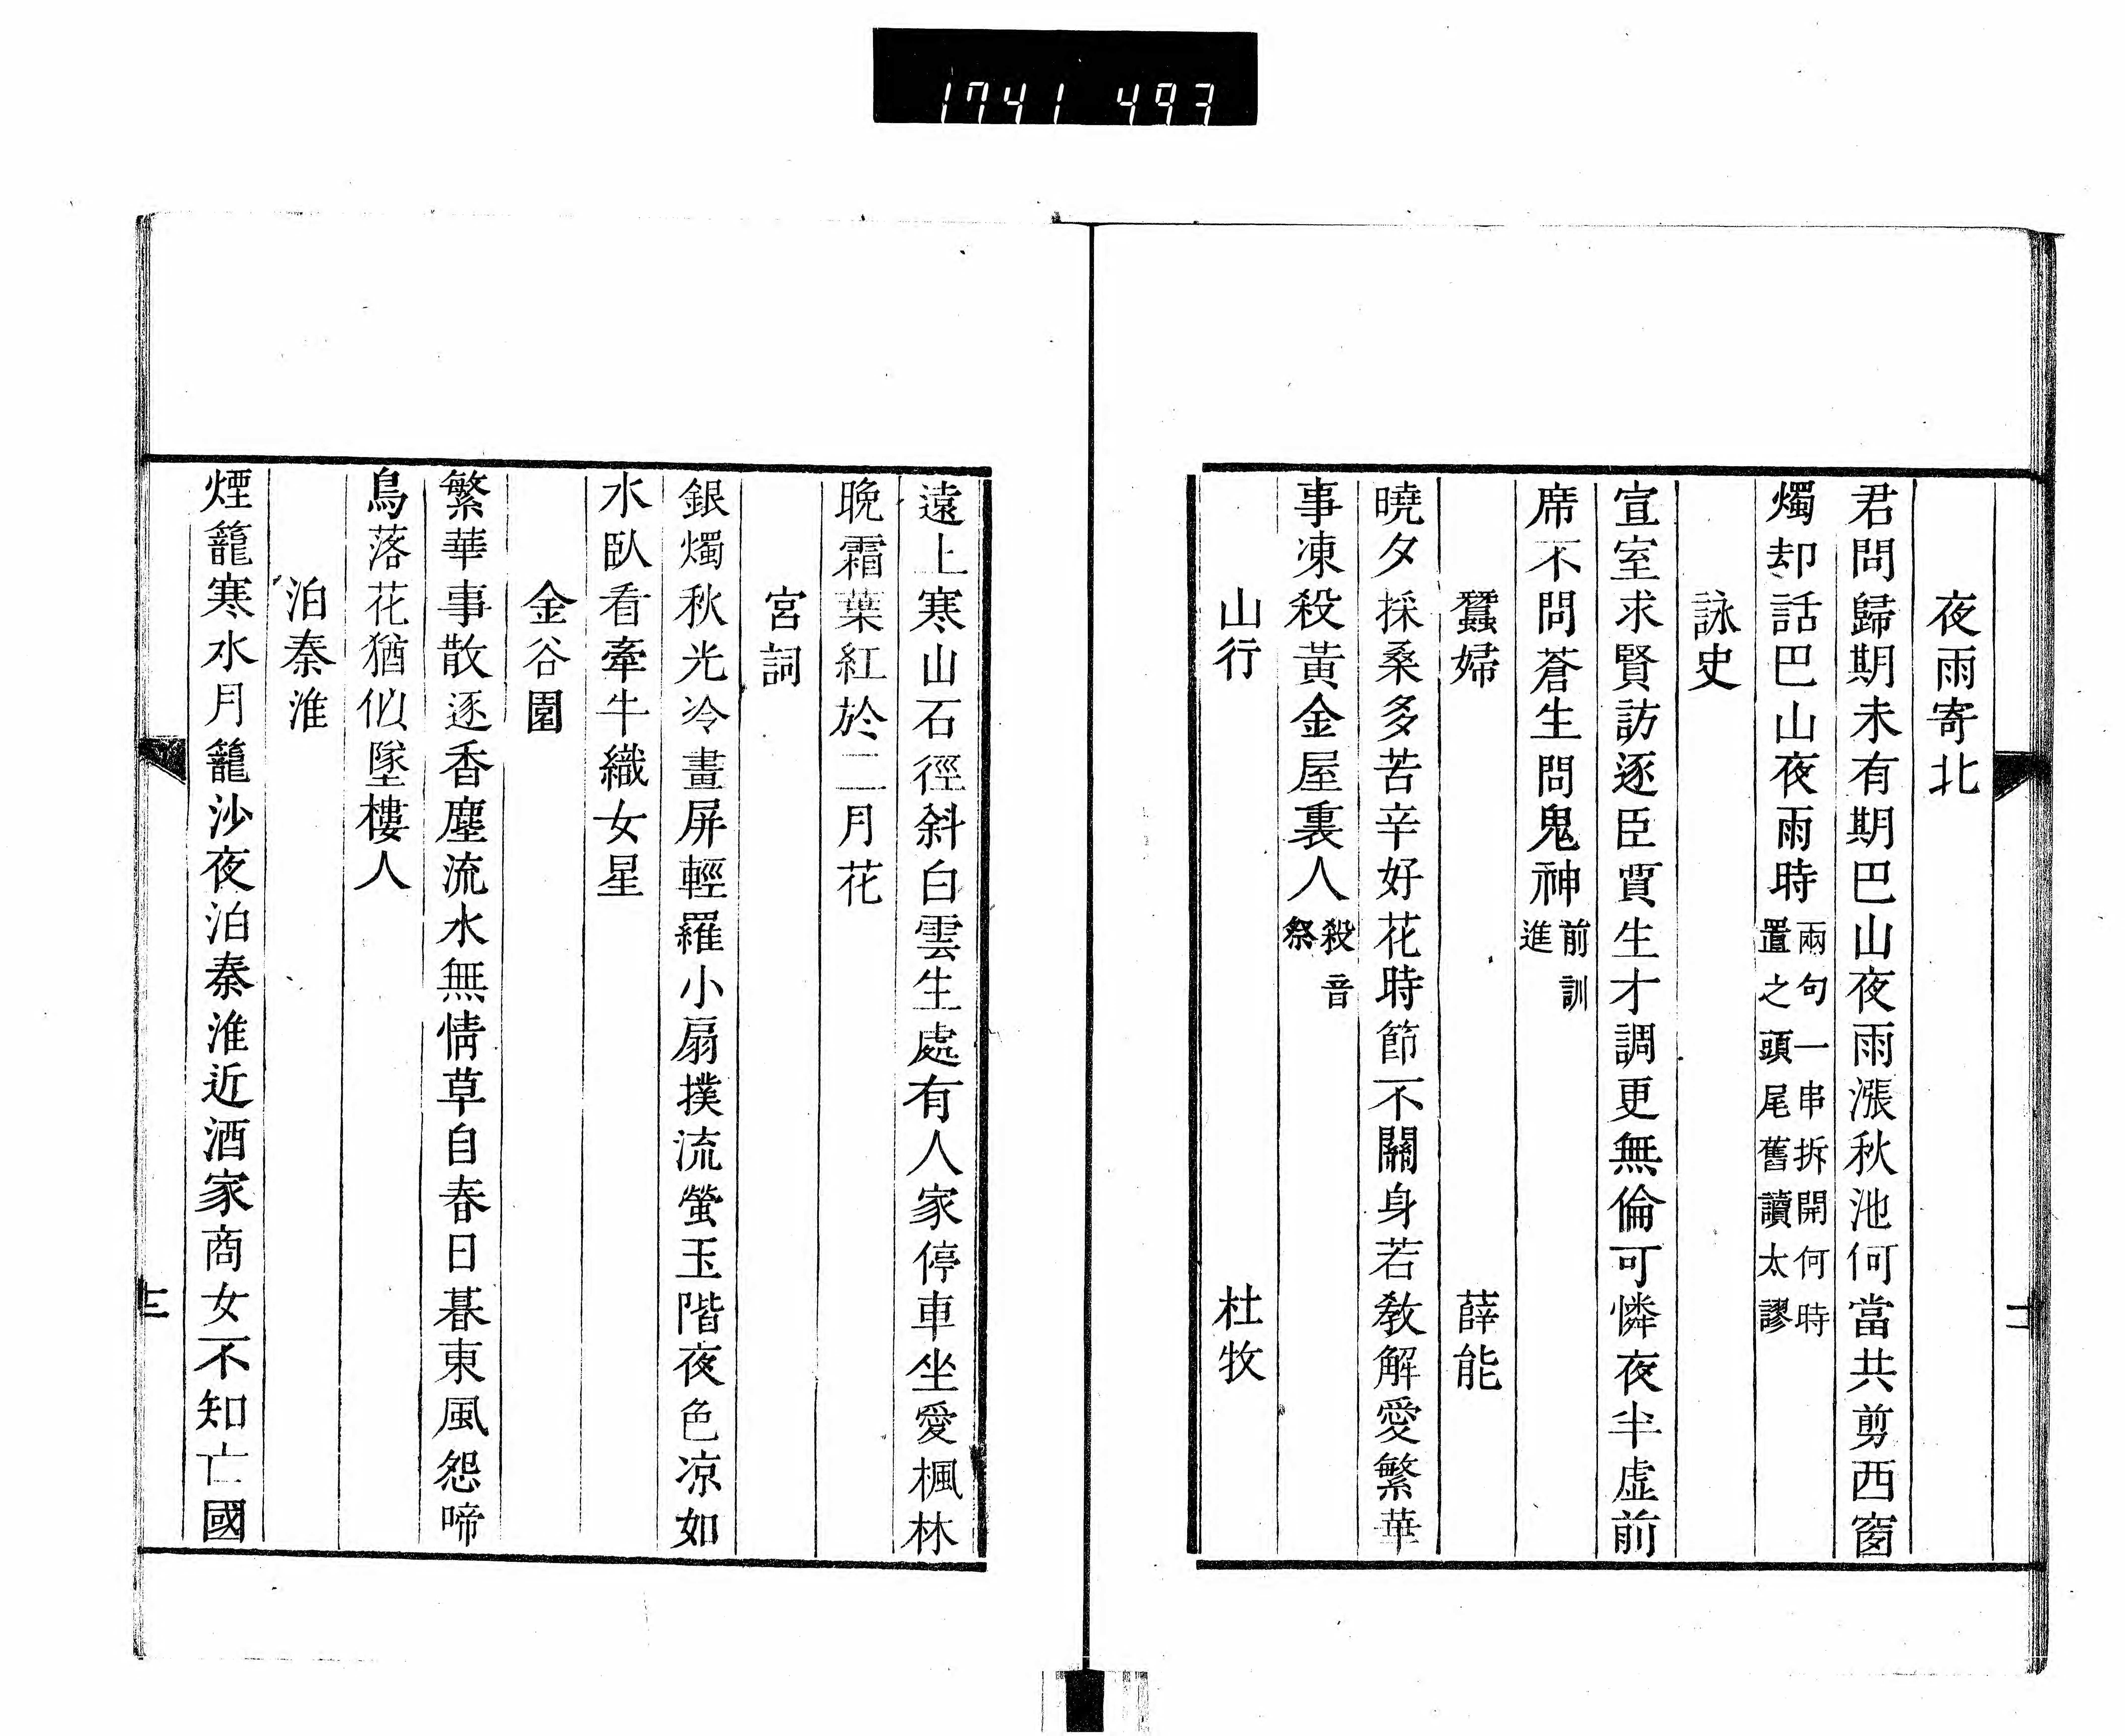 1741 493
夜雨寄北
君問歸期未有期巴山夜雨漲秋池何當共剪西窗
燭却話巴山夜雨時
兩句一串拆開何時
置之頭尾舊讀太謬
詠史
宣室求賢訪逐臣賈生才調更無倫可憐夜半虛前
席不問蒼生問鬼神
前訓
進
蠶婦 薛能
曉夕採桑多苦辛好花時節不關身若教解愛繁華
事凍殺黃金屋裏人
殺音
祭
山行 杜牧
遠上寒山石徑斜白雲生處有人家停車坐愛楓林
晚霜葉紅於二月花
宮詞
銀燭秋光冷畫屏輕羅小扇撲流螢玉階夜色凉如
水臥看牽牛織女星
金谷園
繁華事散逐香塵流水無情草自春日暮東風怨啼
鳥落花猶似墜樓人
泊秦淮
煙籠寒水月籠沙夜泊秦淮近酒家商女不知亡國